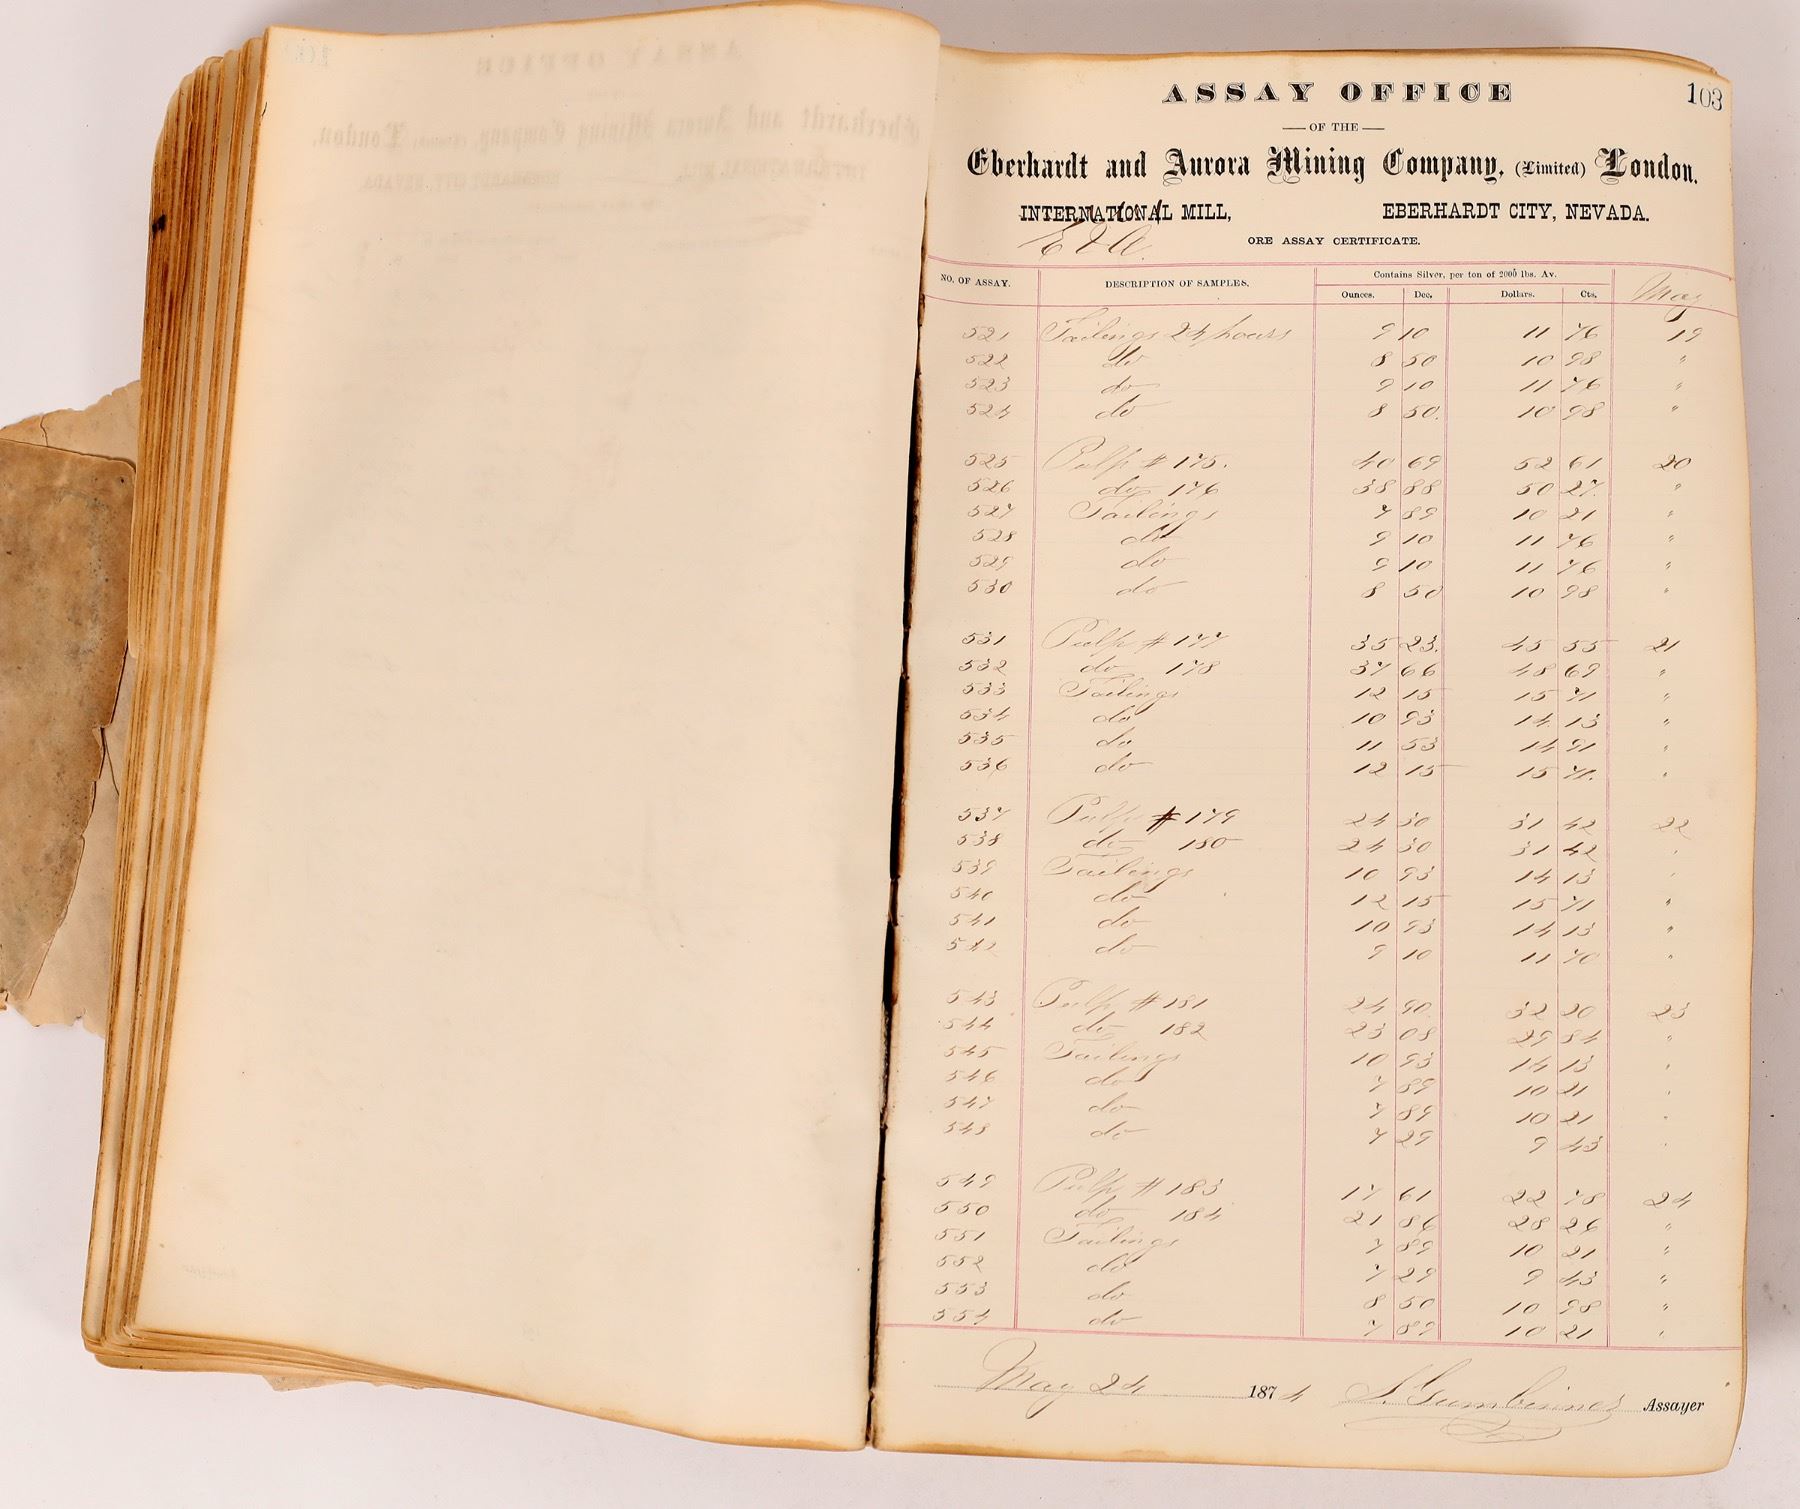 103
ASSAY OFFICE
— OF THE —
Eberhardt and Aurora Mining Company, (Limited) London.
INTERNATIONAL MILL, EBERHARDT CITY, NEVADA.
E & A. ORE ASSAY CERTIFICATE.
NO. OF ASSAY. DESCRIPTION OF SAMPLES. Contains Silver, per ton of 2000 lbs. Av. May
Ounces. Dec. Dollars. Cts.
521 Tailings 24 hours 9 10 11 76 19
522 do 8 50 10 98 "
523 do 9 10 11 76 "
524 do 8 50. 10 98 "
525 Pulp # 175. 40 69 52 61 20
526 do 176 38 88 50 27. "
527 Tailings 7 89 10 21 "
528 do 9 10 11 76 "
529 do 9 10 11 76 "
530 do 8 50 10 98 "
531 Pulp # 177 35 23. 45 55 21
532 do 178 37 66 48 69 "
533 Tailings 12 15 15 71 "
534 do 10 93 14 13 "
535 do 11 53 14 91 "
536 do 12 15 15 71. "
537 Pulp # 179 24 30 31 42 22
538 do 180 24 30 31 42 "
539 Tailings 10 93 14 13 "
540 do 12 15 15 71 "
541 do 10 93 14 13 "
542 do 9 10 11 70 "
543 Pulp # 181 24 90. 32 20 23
544 do 182 23 08 29 84 "
545 Tailings 10 93 14 13 "
546 do 7 89 10 21 "
547 do 7 89 10 21 "
548 do 7 29 9 43 "
549 Pulp # 183 17 61 22 78 24
550 do 184 21 86 28 26 "
551 Tailings 7 89 10 21 "
552 do 7 29 9 43 "
553 do 8 50 10 98 "
554 do 7 89 10 21 "
May 24 1874 Gumbinner Assayer